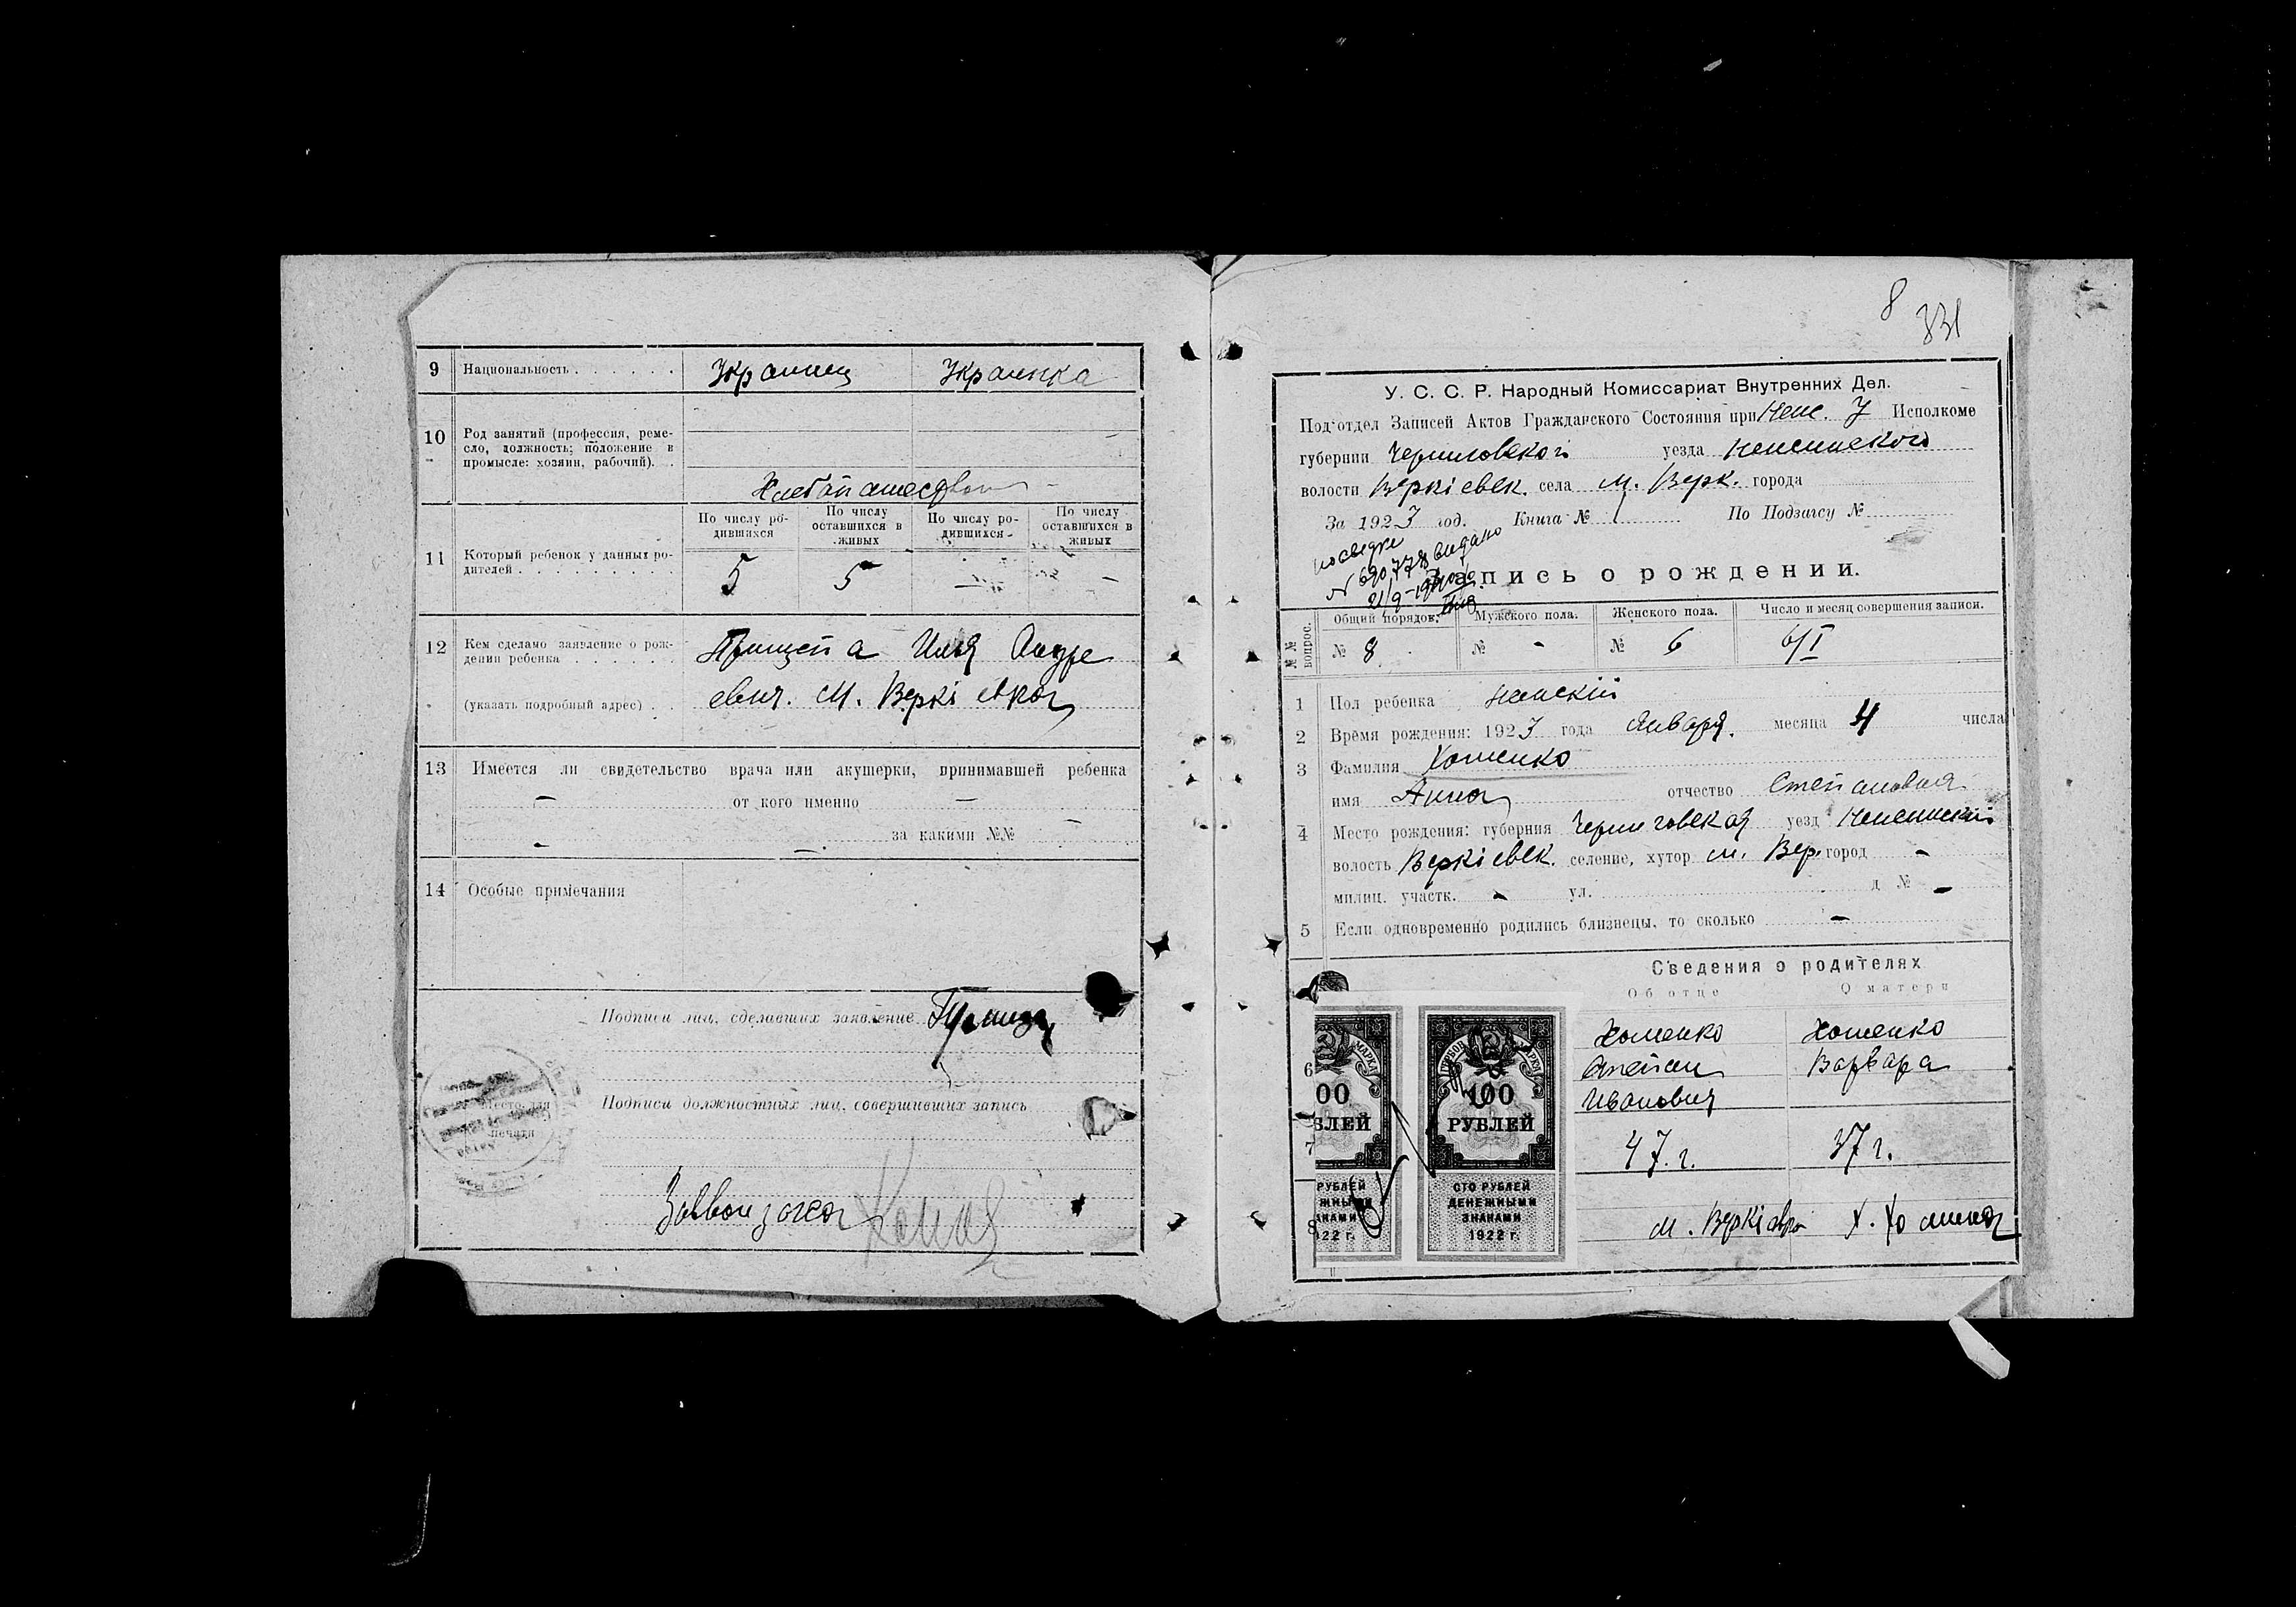 9 Национальность . . . . . . Украинец Украинка
10 Род занятий (профессия, реме-
сло, должность; положение в
промысле: хозяин, рабочий). .
Хлебопашество
11 Который ребенок у данных ро-
дителей . . . . . . . . .
По числу ро-
дившихся
По числу
оставшихся в
живых
По числу ро-
дившихся
По числу
оставшихся в
живых
5 5 — —
12 Кем сделано заявление о рож-
дении ребенка . . . . . . Прищепа Илья Андре
(указать подробный адрес) . . евич. М. Веркіевка
13 Имеется ли свидетельство врача или акушерки, принимавшей ребенка
— от кого именно —
— — за какими №№ —
14 Особые примечания
Подписи лиц, сделавших заявление
Место для
печати
Подписи должностных лиц, совершивших запись
8
331
У. С. С. Р. Народный Комиссариат Внутренних Дел.
Под'отдел Записей Актов Гражданского Состояния при Неж. У Исполкоме
губернии Черниговской уезда Неженского
волости Веркіевск. села м. Верк. города
За 1923 год. Книга № 1 По Подзагсу №
№ 690778 видано
21/9-
Запись о рождении.
№№ вопрос.
Общий порядов. Мужского пола. Женского пола. Число и месяц совершения записи.
№ 8 № - № 6 6/I
1 Пол ребенка женскій
2 Время рождения: 1923 года Января. месяца 4 числа
3 Фамилия Хоменко
имя Анна отчество Степановна
4 Место рождения: губерния Черниговская уезд Неженский
волость Веркіевск. селение, хутор м. Вер. город -
милиц. участк. - ул. д № -
5 Если одновременно родились близнецы, то сколько -
Сведения о родителях
Об отце О матери
6 Хоменко Хоменко
Степан Варвара
Иванович
7 47.г. 37 г.
8 м. Веркіевка
00
БЛЕЙ
РУБЛЕЙ
22 г.
ГЕРБОВ. МАРКА
100
РУБЛЕЙ
СТО РУБЛЕЙ
ДЕНЕЖНЫМИ
ЗНАКАМИ
1922 г.